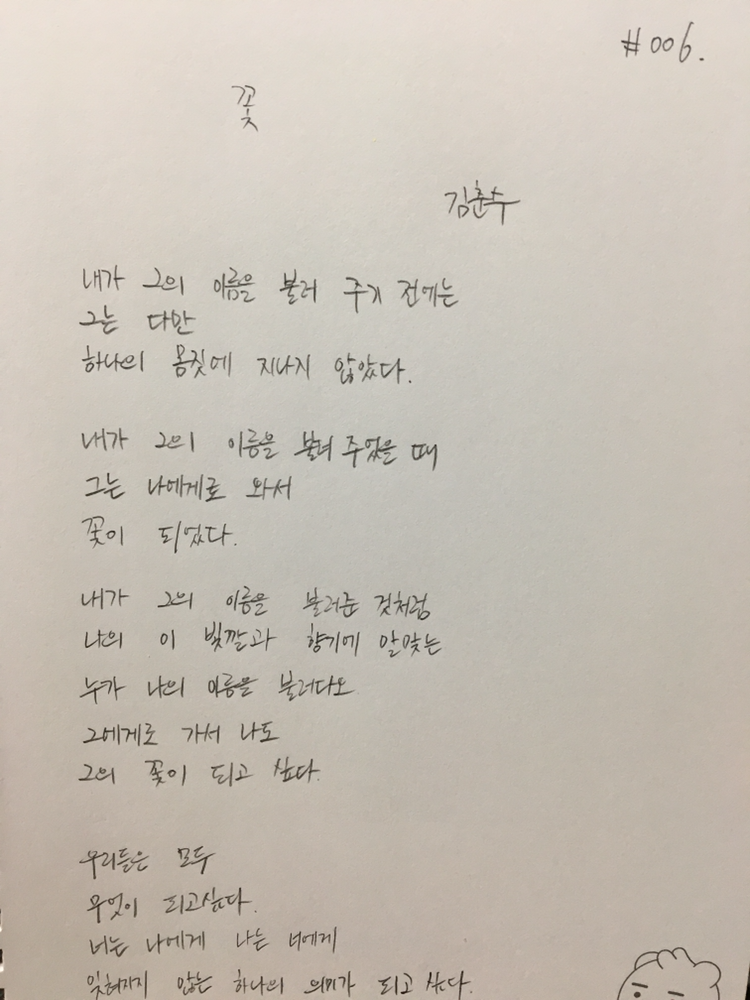 #006.
꽃
김춘수
내가 그의 이름을 불러 주기 전에는
그는 다만
하나의 몸짓에 지나지 않았다.
내가 그의 이름을 불러 주었을 때
그는 나에게로 와서
꽃이 되었다.
내가 그의 이름을 불러준 것처럼
나의 이 빛깔과 향기에 알맞는
누가 나의 이름을 불러다오
그에게로 가서 나도
그의 꽃이 되고 싶다.
우리들은 모두
무엇이 되고싶다.
너는 나에게 나는 너에게
잊혀지지 않는 하나의 의미가 되고 싶다.